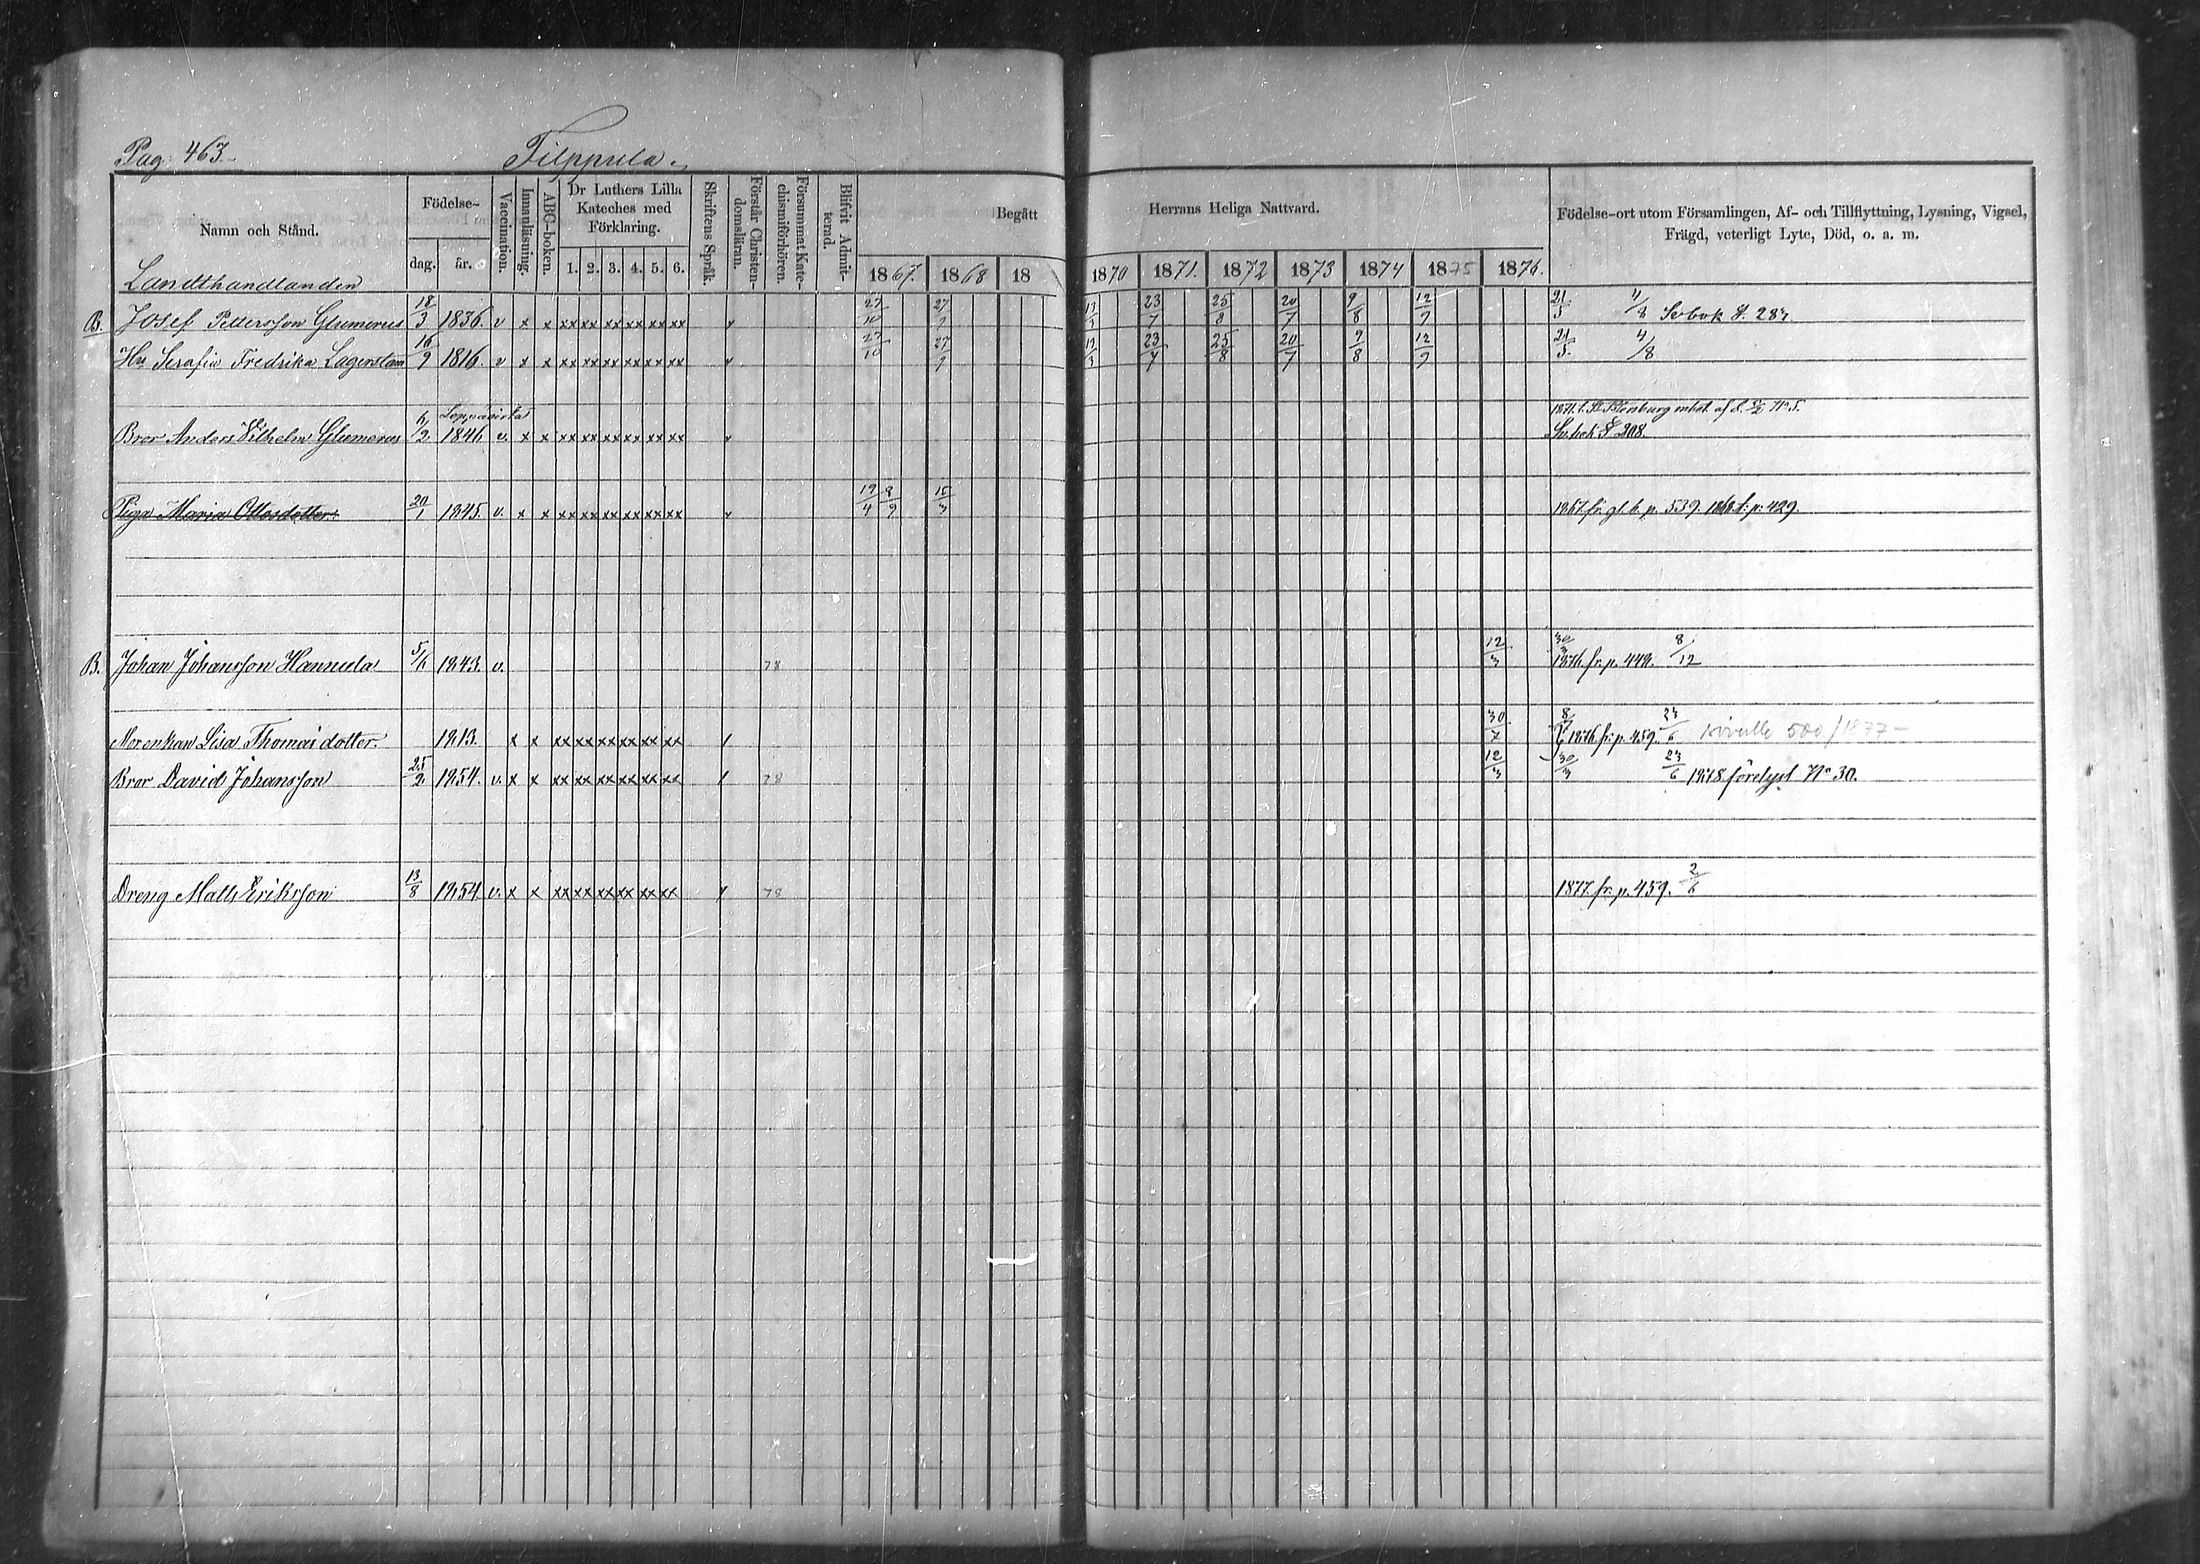 Pag. 463. Filppula.
Namn och Stånd. Födelse- Vaccination. Innanläsning. ABC-boken. Dr Luthers Lilla Kateches med Förklaring. Skriftens Språk. Förstår Christendomsläran. Försummat Katechismiförhören. Blifvit Admitterad. Begått Herrans Heliga Nattvard. Födelse-ort utom Församlingen, Af- och Tillflyttning, Lysning, Vigsel, Frägd, veterligt Lyte, Död, o. a. m.
dag. år. 1. 2. 3. 4. 5. 6. 1867. 1868 18 1870 1871. 1872 1873 1874 1875 1876.
Landthandlanden
B. Josef Pettersson Glumerus 18/3 1836. v x x xx xx xx xx xx xx v 27/10 27/9 23/7 25/8 20/7 9/8 12/9 21/5 4/8
Hu Serafia Fredrika Lagerstam 16/9 1816. v x x xx xx xx xx xx xx v 27/10 27/9 23/7 25/8 20/7 9/8 12/9 21/5. 4/8
Bror Anders Vilhelm Glumerus 6/2 1846 v. x x xx xx xx xx xx xx v
Sv. bok 208.
Piga Maria Ottosdotter. 20/1 1845. v. x x xx xx xx xx xx xx v 19/4 8/9 15/3 1867 fr. gl. b. p. 539. 1868 t: p: 429.
B. Johan Johansson Hannula 5/6 1843. v. 78 12/3 30/3 1876. fr. p. 449. 8/12
Morenkan Lisa Thomasdotter. 1813. x x xx xx xx xx xx xx / 30/7 1876 fr. p. 459. 23/6 500/1877-
Bror David Johansson 25/2 1854. v. x x xx xx xx xx xx xx / 78 12/3 30/3 23/6 1878 förelyst No 30.
Dreng Matts Eriksson 13/8 1854. v. x x xx xx xx xx xx xx / 78 1877. fr. p. 459. 2/6